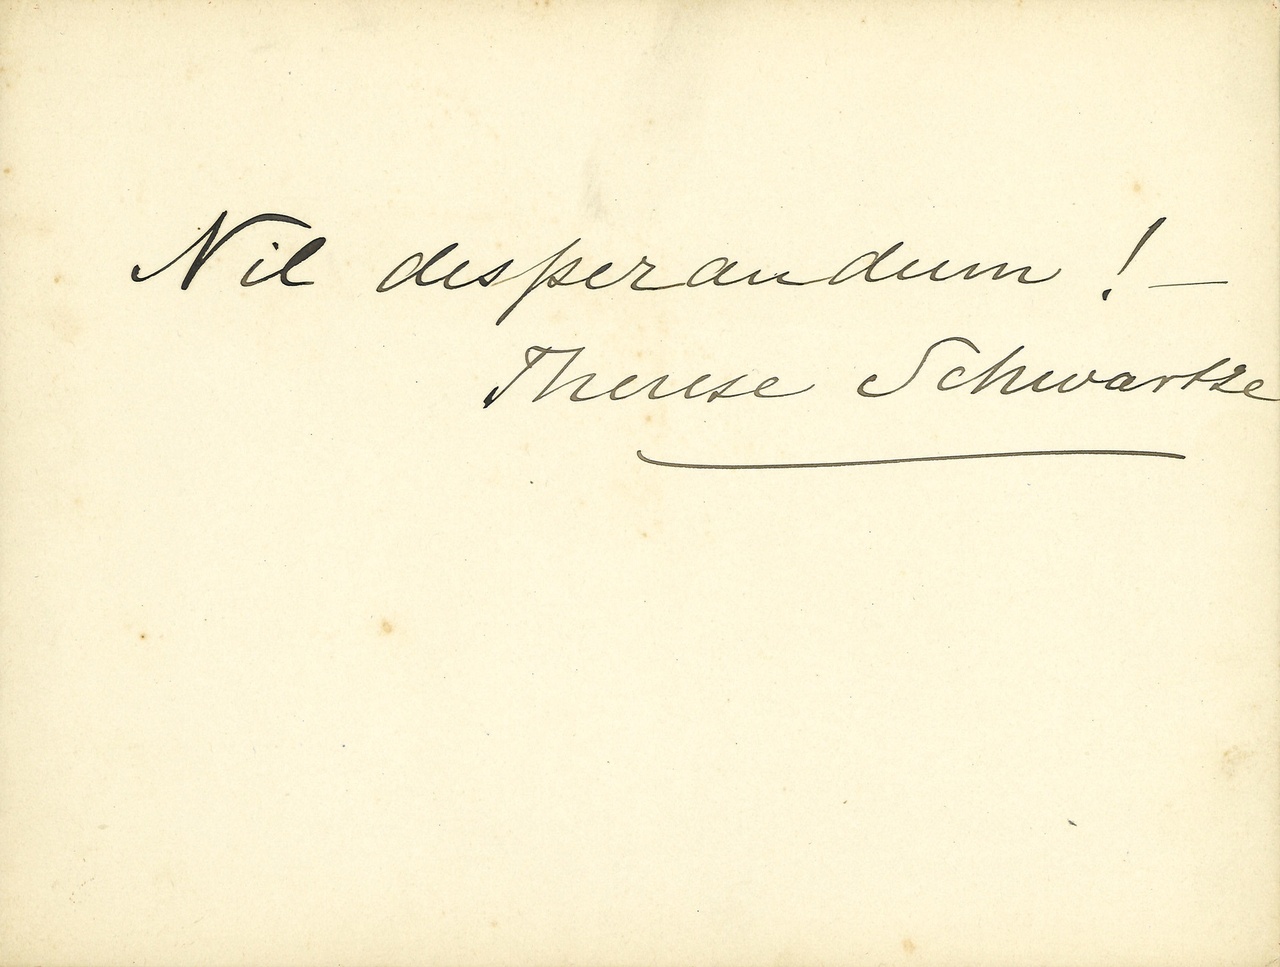 Nil desperandum ! —
Therese Schwartze